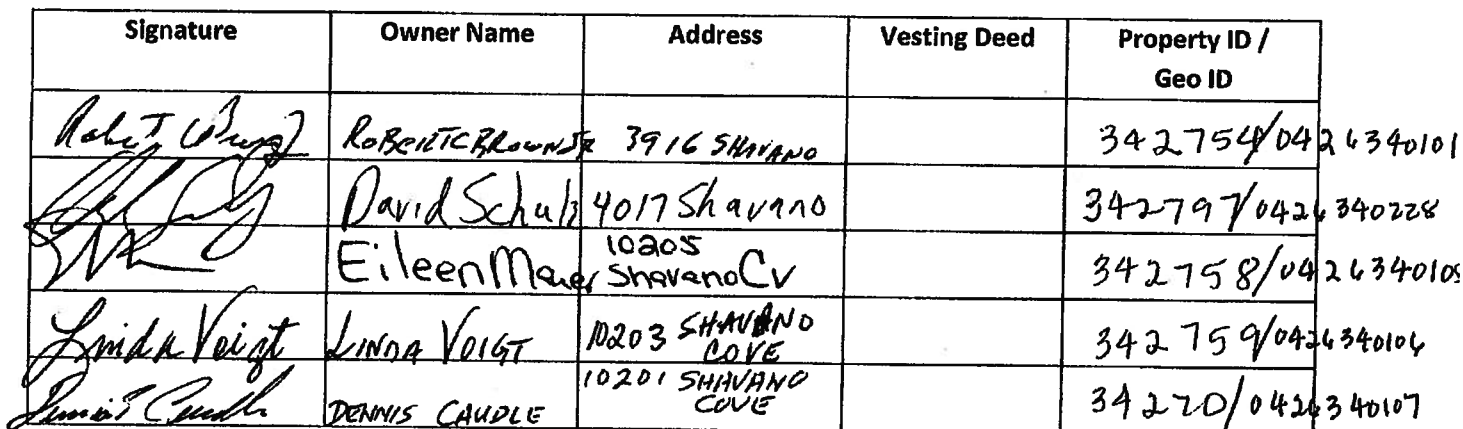 Signature Owner Name Address Vesting Deed Property ID /
Geo ID
ROBERT C BROWN JR 3916 SHAVANO 342754/0426340101
David Schulz 4017 Shavano 342797/0426340228
10205
Eileen Shavano Cv 342758/0426340105
Linda Voigt LINDA VOIGT 10203 SHAVANO 342759/0426340106
COVE
10201 SHAVANO
DENNIS CAUDLE COVE 34270/0426340107